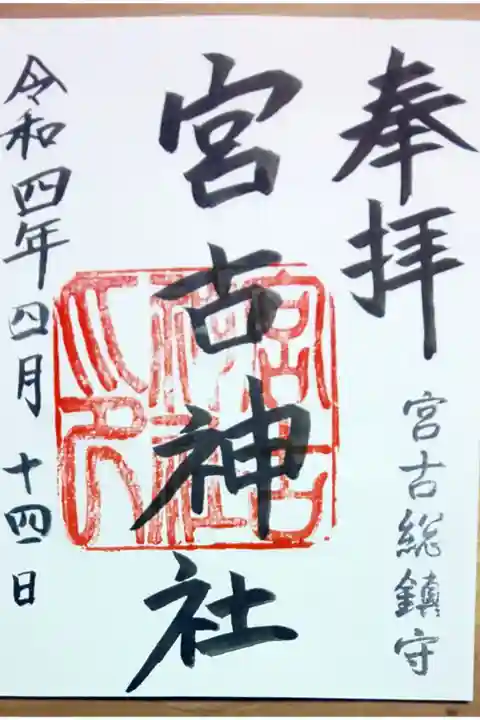 奉拝
宮古総鎮守
宮古神社
宮古神社之印
令和四年四月十四日